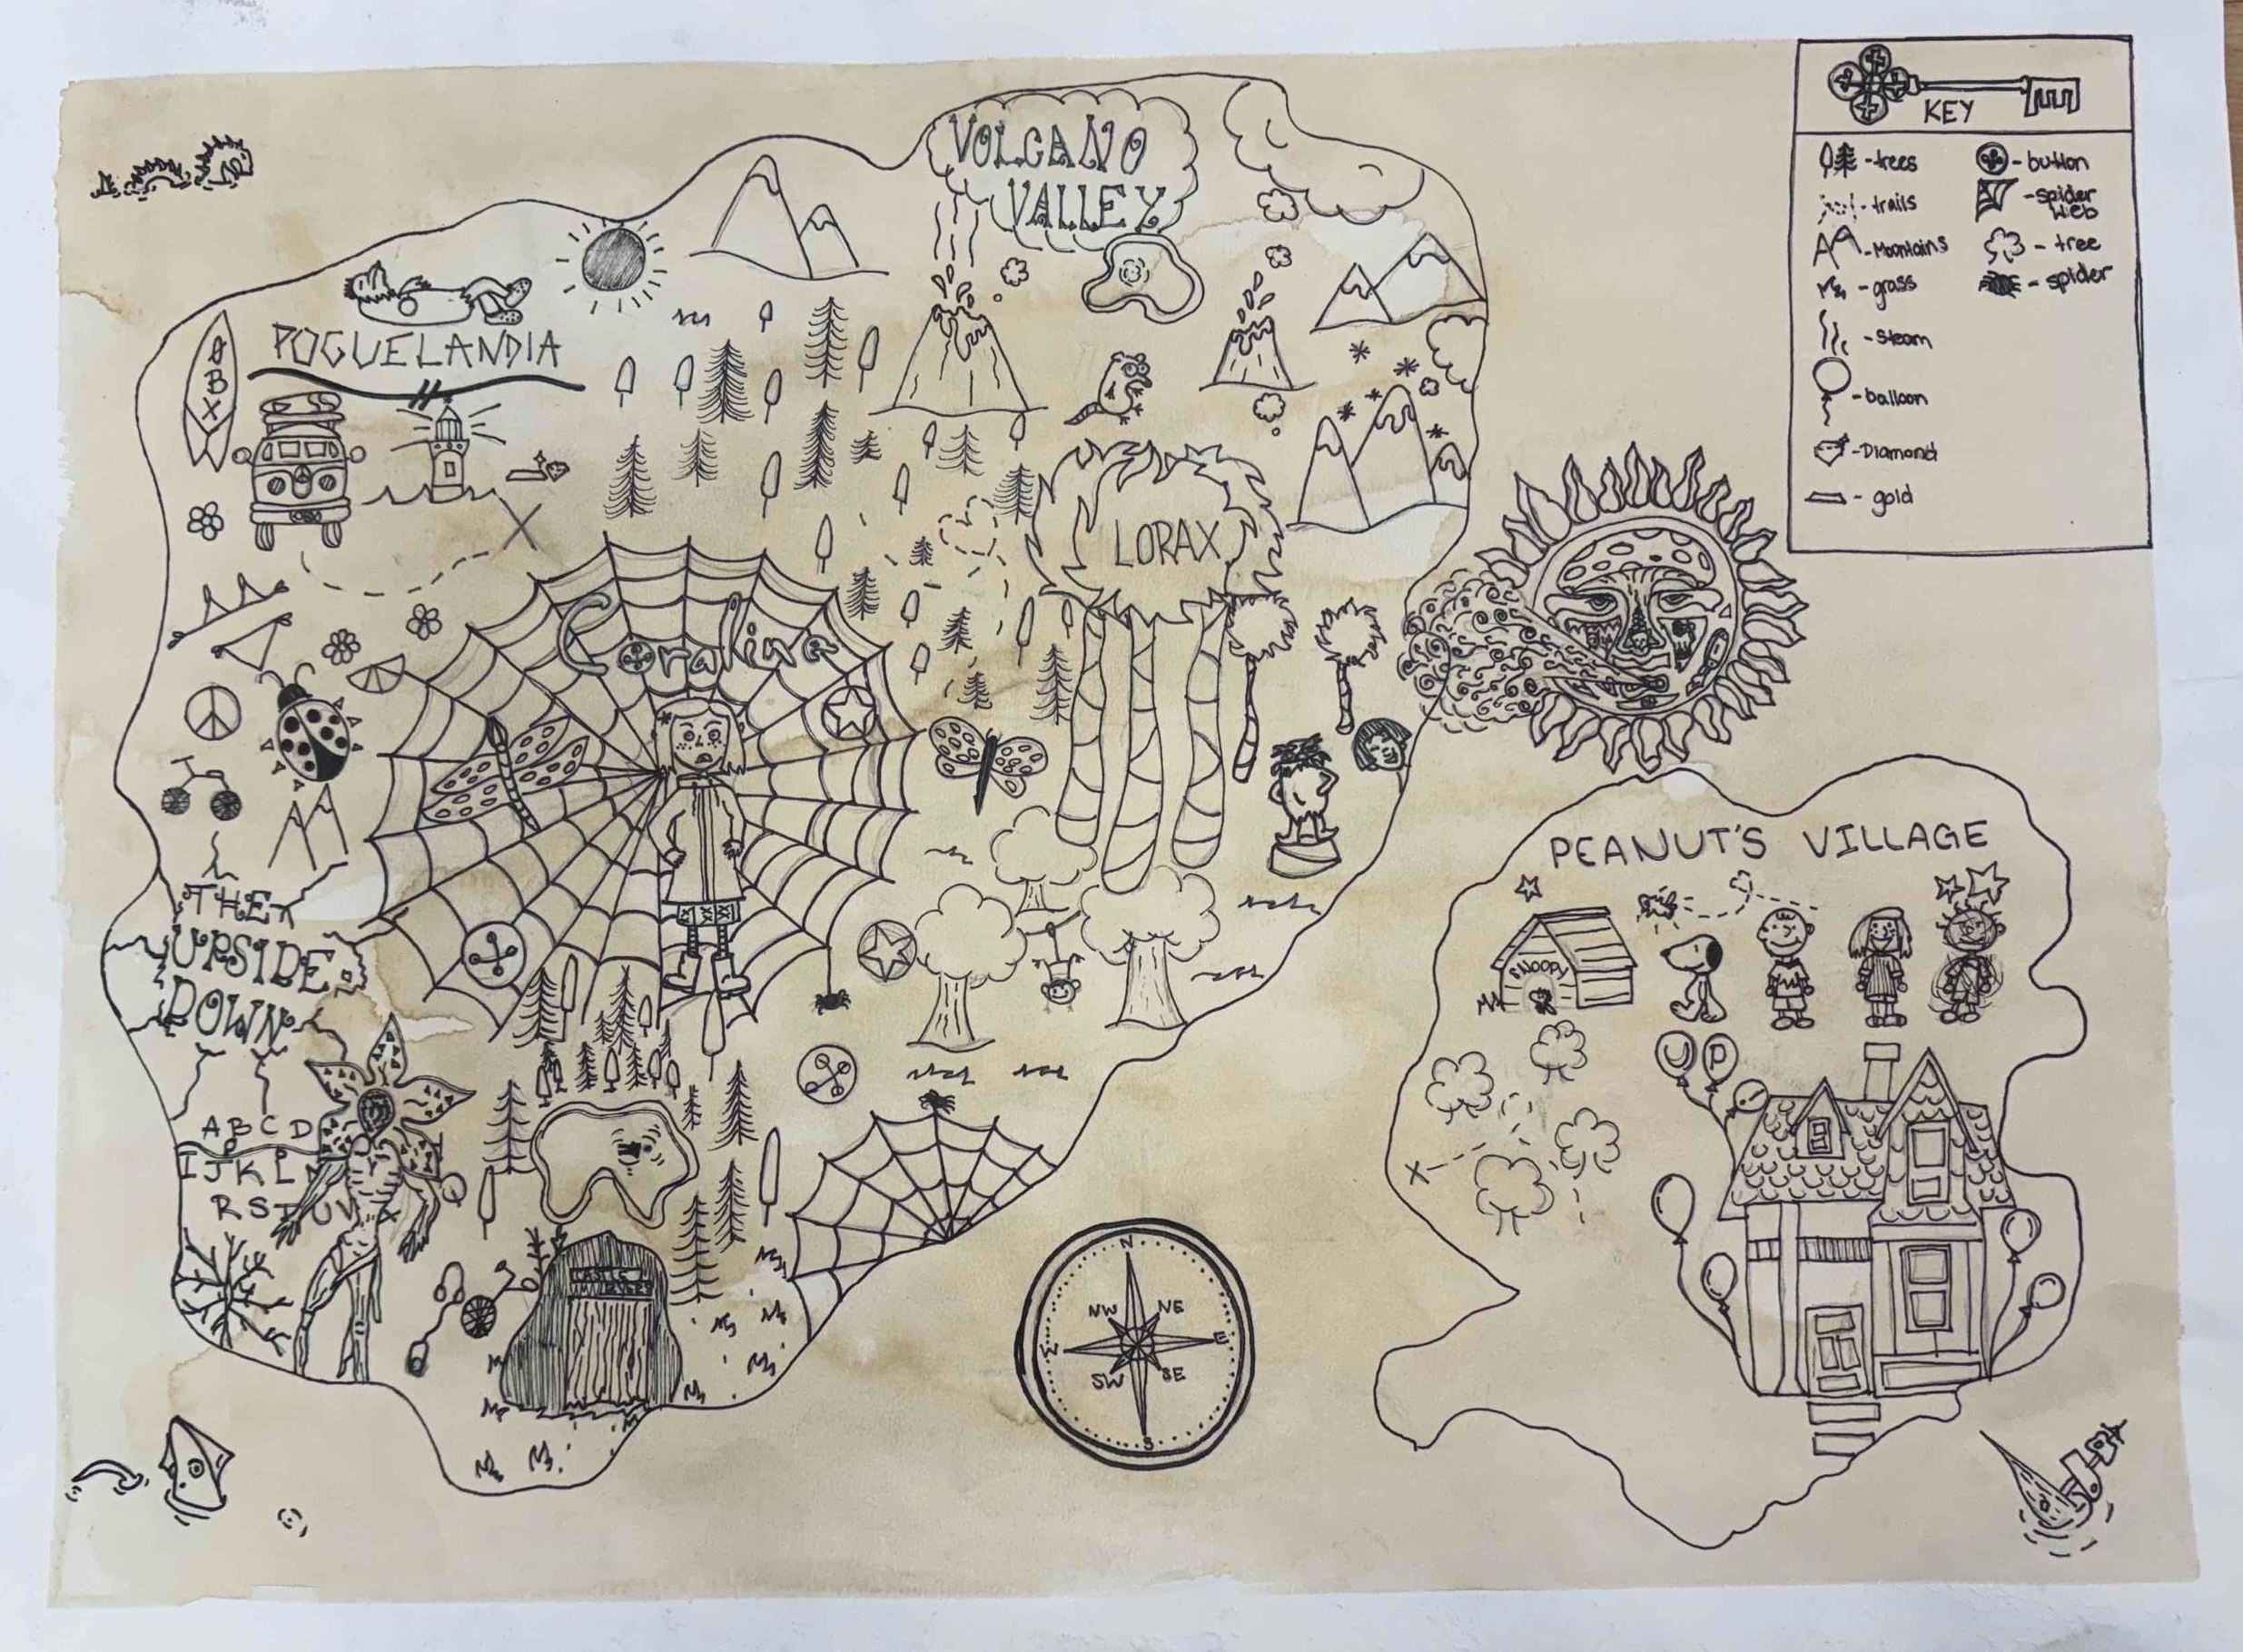 VOLCANO
VALLEY
KEY
-trees
-trails
-Mountains
-grass
-Steam
-balloon
-Diamond
-gold
-button
-spider
web
-tree
-spider
POGUELANDIA
OBX
LORAX
Coraline
PEANUT'S VILLAGE
SNOOPY
THE
UPSIDE
DOWN
A B C D
I J K L
R S T U V
UP
CASTLE
N
NW NE
W E
SW SE
S